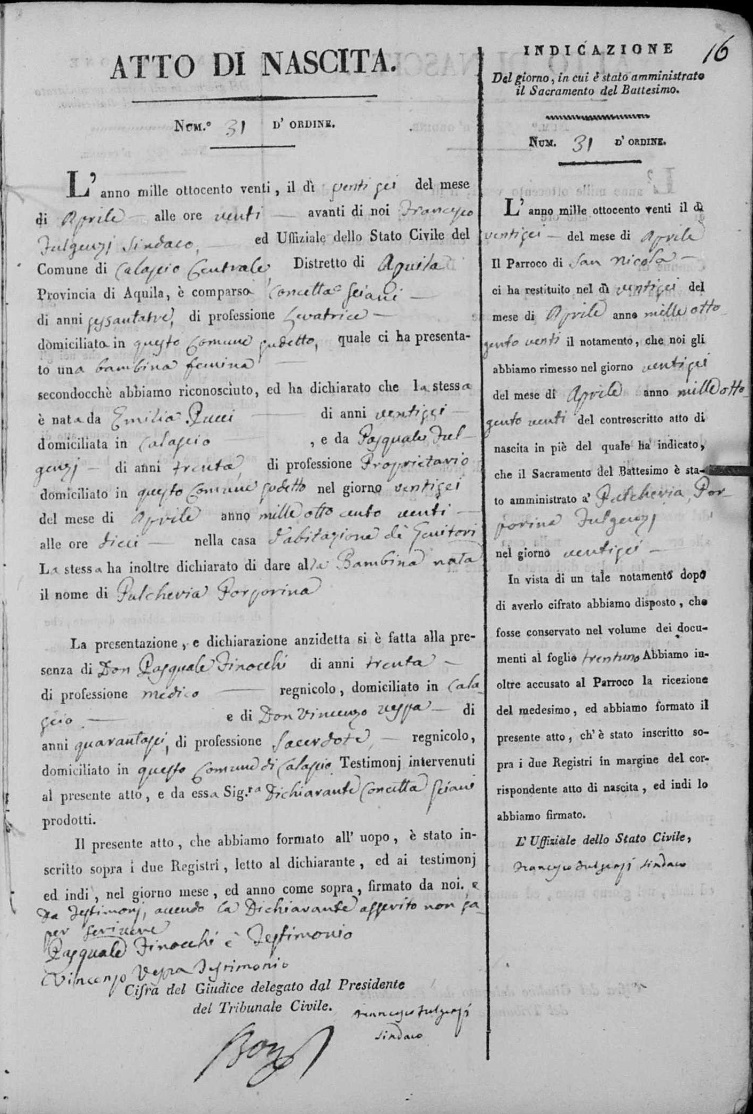 ATTO DI NASCITA.
NUM.° 31 D'ORDINE.
L'anno mille ottocento venti, il dì ventisei del mese
di Aprile alle ore venti avanti di noi Francesco
Fulgenzj Sindaco, ed Uffiziale dello Stato Civile del
Comune di Calascio Centrale Distretto di Aquila
Provincia di Aquila, è comparsa Concetta Sciani
di anni sessantatre, di professione Levatrice
domiciliata in questo Comune sudetto, quale ci ha presenta-
to una bambina femina
secondocchè abbiamo riconosciuto, ed ha dichiarato che la stessa
è nata da Emilia Pucci di anni ventisei
domiciliata in Calascio, e da Pasquale Ful-
genzj di anni trenta di professione Proprietario
domiciliato in questo Comune sudetto nel giorno ventisei
del mese di Aprile anno mille otto cento venti
alle ore dieci nella casa d'abitazione de' Genitori
La stessa ha inoltre dichiarato di dare alla Bambina nata
il nome di Pulcheria Porporina
La presentazione, e dichiarazione anzidetta si è fatta alla pre-
senza di Don Pasquale Finocchi di anni trenta
di professione medico regnicolo, domiciliato in Cala-
scio e di Don Vincenzo Vespa di
anni quarantasei, di professione Sacerdote, regnicolo,
domiciliato in questo Comune di Calascio Testimonj intervenuti
al presente atto, e da essa Sig.ra Dichiarante Concetta Sciani
prodotti.
Il presente atto, che abbiamo formato all' uopo, è stato in-
scritto sopra i due Registri, letto al dichiarante, ed ai testimonj
ed indi, nel giorno mese, ed anno come sopra, firmato da noi. e
da Testimonj, avendo la Dichiarante asserito non sa-
per scrivere
Pasquale Finocchi è Testimonio
Vincenzo Vespa Testimonio
Cifra del Giudice delegato dal Presidente
del Tribunale Civile.
Francesco Fulgenzj
Sindaco
16
INDICAZIONE
Del giorno, in cui è stato amministrato
il Sacramento del Battesimo.
NUM. 31 D'ORDINE.
L'anno mille ottocento venti il dì
ventisei del mese di Aprile
Il Parroco di San Nicola
ci ha restituito nel dì ventisei del
mese di Aprile anno mille otto-
cento venti il notamento, che noi gli
abbiamo rimesso nel giorno ventisei
del mese di Aprile anno mille otto
cento venti del controscritto atto di
nascita in piè del quale ha indicato,
che il Sacramento del Battesimo è sta-
to amministrato a' Pulcheria Por-
porina Fulgenzj
nel giorno ventisei
In vista di un tale notamento dopo
di averlo cifrato abbiamo disposto, che
fosse conservato nel volume dei docu-
menti al foglio trentuno Abbiamo in-
oltre accusato al Parroco la ricezione
del medesimo, ed abbiamo formato il
presente atto, ch'è stato inscritto so-
pra i due Registri in margine del cor-
rispondente atto di nascita, ed indi lo
abbiamo firmato.
L'Uffiziale dello Stato Civile,
Francesco Fulgenzj Sindaco